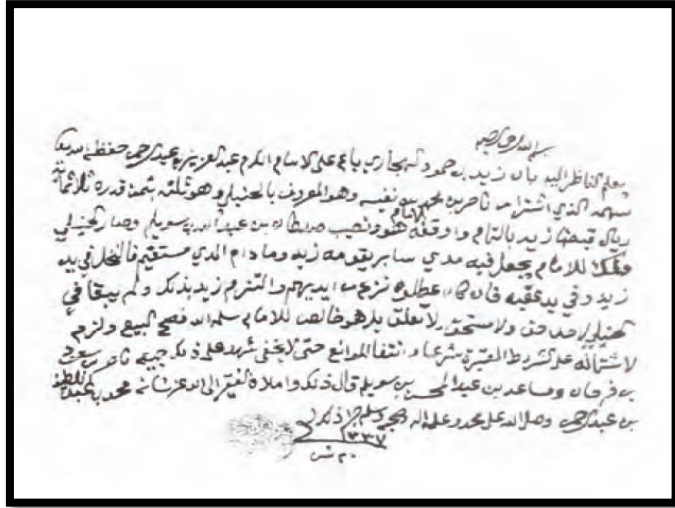 بسم الله الرحمن الرحيم
يعلم الناظر اليه بان زيد بن حمود باع على الامام المكرم عبدالعزيز بن عبدالرحمن حفظه الله
سهمه الذي اشتراه من ناصر بن محمد بن نفيسه وهو المعروف بالحنيلي وهو ثلثه بثمن قدره ثلاثمائة
ريال قبضها زيد بالتمام و الامام هو ونصيب سلطان بن عبدالله بن سويلم وصار الحنيلي
للامام يجعل فيه مدي سابر يقومه زيد وما دام المدي مستقيم فالنخل في يد
زيد وفي يد عقبه فان كان عطلوه نزع من ايديهم والتزم زيد بذلك ولم يبقا في
الحنيلي لاحد حق ولا مستحق ولا علق بل هو خالص للامام سلمه الله فصح البيع ولزم
لاشتماله على شروط المعتبرة شرعا وانتفا الموانع حتى لا يخفى شهد على ذلك جميعه ناصر بن سعود
بن فرحان ومساعد بن عبدالمحسن بن سويلم قال ذلك واملاه الفقير الى الله عز شانه محمد بن عبداللطيف
بن عبدالرحمن وصلى الله على محمد وعلى اله وصحبه وسلم جرا ذلك
٣٣٧